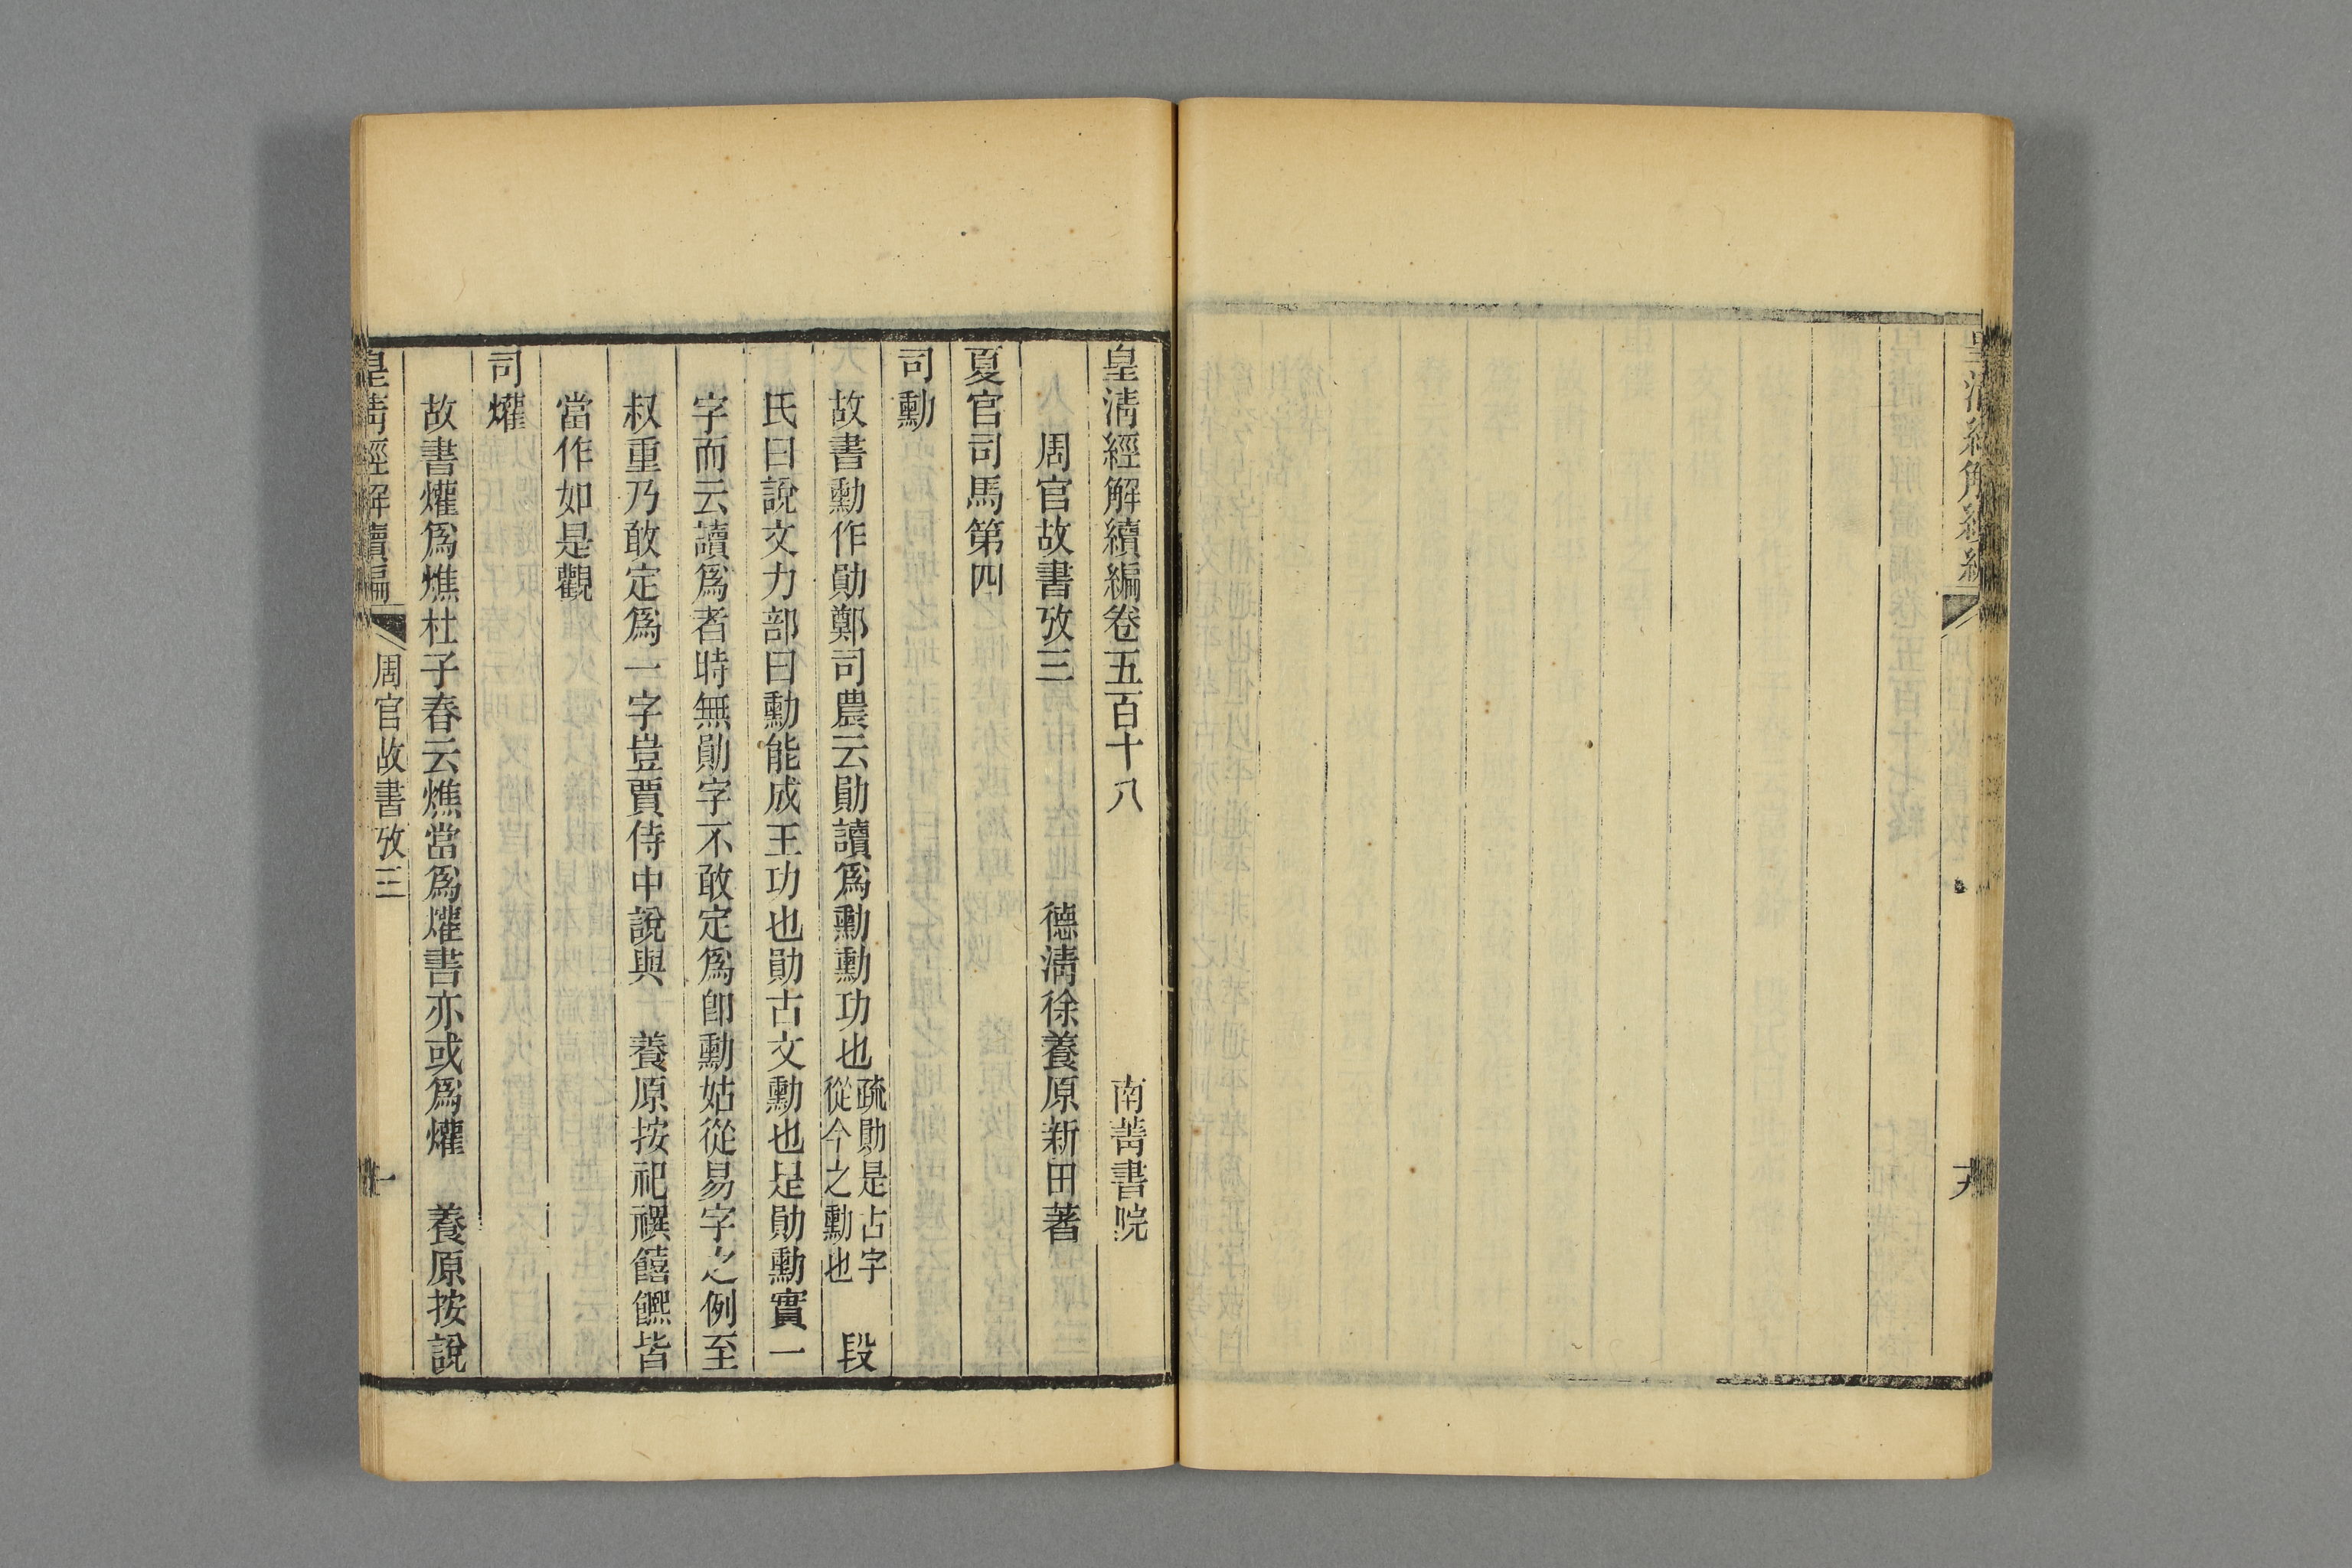 皇清經解續編卷五百十八　南菁書院
周官故書攷三　德清徐養原新田著
夏官司馬第四
司勳
故書勳作勛鄭司農云勛讀爲勳勳功也疏勛是古字從今之勳也　段
氏曰說文力部曰勳能成王功也勛古文勳也是勛勳實一
字而云讀爲者時無勛字不敢定爲卽勳姑從易字之例至
叔重乃敢定爲一字豈賈侍中說與　養原按祀禩饎𩟄皆
當作如是觀
司爟
故書爟爲燋杜子春云燋當爲爟書亦或爲爟　養原按說
皇清經解續編　周官故書攷三　一